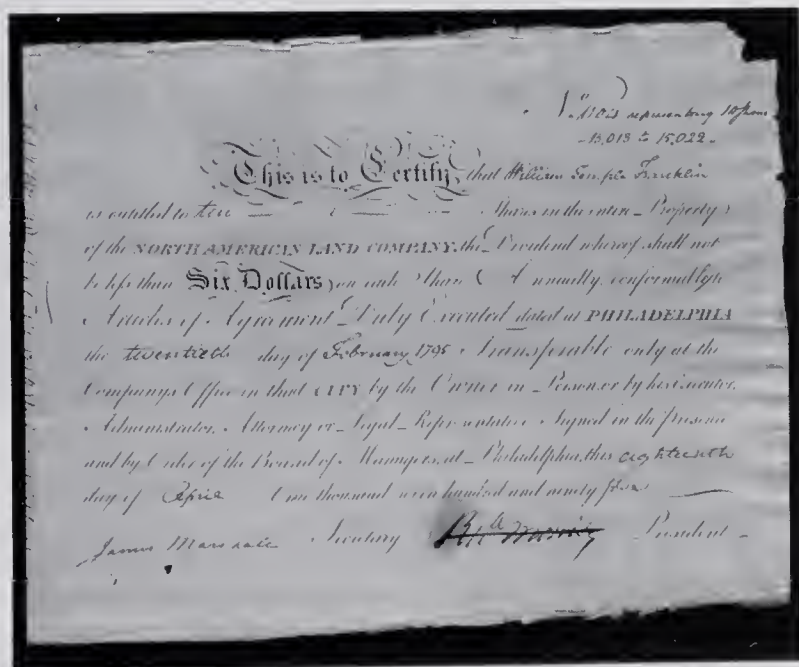 representing 10 shares
15,013 to 15,022.
This is to Certify, that William Temple Franklin
is entitled to ten Shares in the entire Property
of the NORTH AMERICAN LAND COMPANY, the Dividend whereof shall not
be less than Six Dollars on each Share Annually, conformably to
Articles of Agreement Duly Executed dated at PHILADELPHIA
the twentieth day of February 1795 Transferable only at the
Company's Office in that CITY by the Owner in Person, or by his Executor,
Administrator, Attorney or Legal Representative Signed in the presence
and by Order of the Board of Managers, at Philadelphia, this eighteenth
day of April One thousand seven hundred and ninety five
James Marshall Secretary Rob Morris President